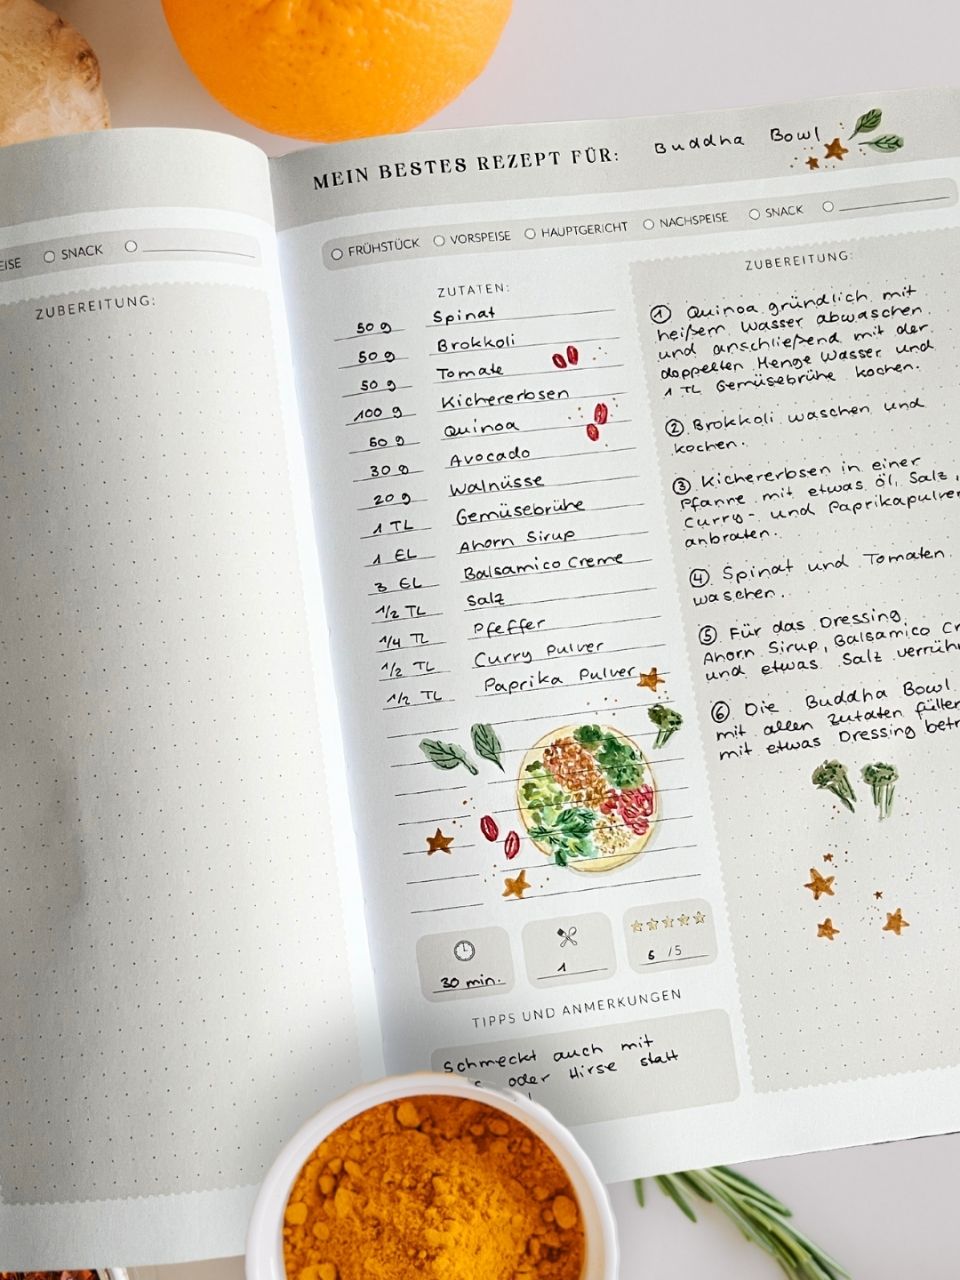 SNACK
ZUBEREITUNG:
MEIN BESTES REZEPT FÜR: Buddha Bowl
FRÜHSTÜCK VORSPEISE HAUPTGERICHT NACHSPEISE SNACK
ZUTATEN:
50 g Spinat
50 g Brokkoli
50 g Tomate
100 g Kichererbsen
50 g Quinoa
30 g Avocado
20 g Walnüsse
1 TL Gemüsebrühe
1 EL Ahorn Sirup
3 EL Balsamico Creme
1/2 TL Salz
1/4 TL Pfeffer
1/2 TL Curry Pulver
1/2 TL Paprika Pulver
30 min.
1
5 /5
TIPPS UND ANMERKUNGEN
Schmeckt auch mit
oder Hirse statt
ZUBEREITUNG:
① Quinoa gründlich mit
heißem Wasser abwaschen
und anschließend mit der
doppelten Menge Wasser und
1 TL Gemüsebrühe kochen.
② Brokkoli waschen und
kochen.
③ Kichererbsen in einer
Pfanne mit etwas Öl, Salz,
Curry- und Paprikapulver
anbraten.
④ Spinat und Tomaten
waschen.
⑤ Für das Dressing
Ahorn Sirup, Balsamico
und etwas Salz
⑥ Die Buddha Bowl
mit allen Zutaten
mit etwas Dressing